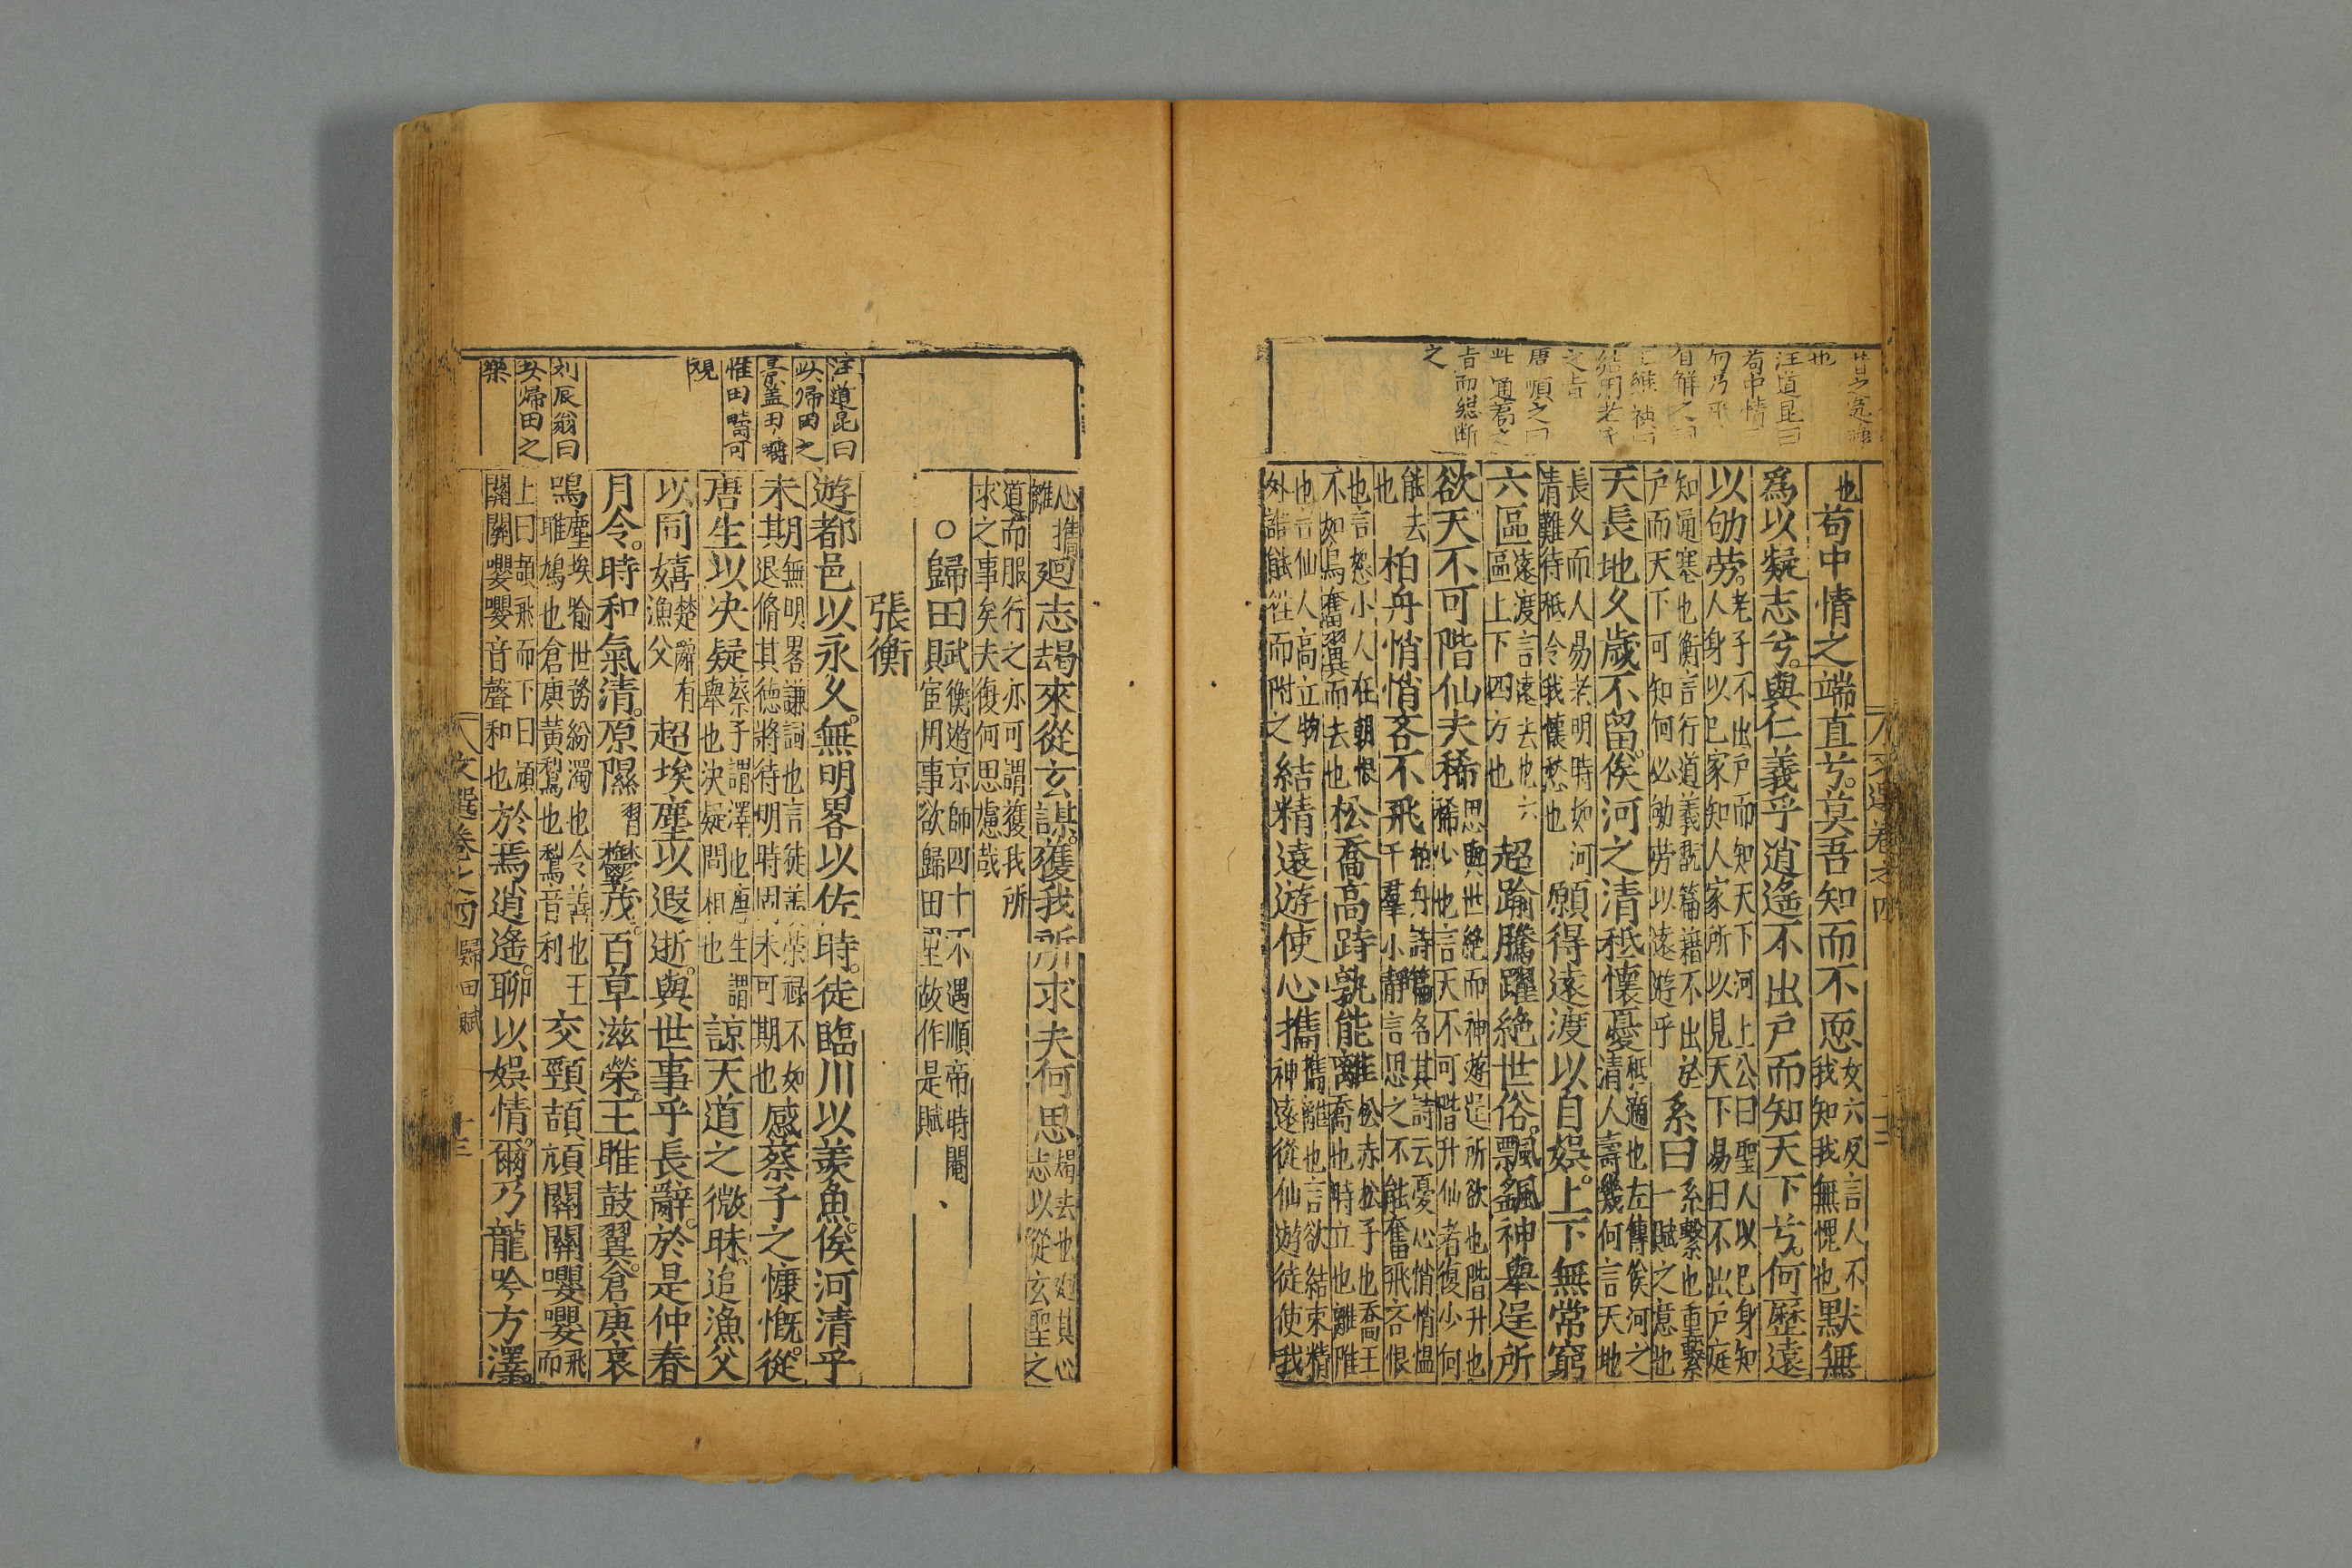 也
汪道昆曰
苟中情
唐順之曰
此通篇之
旨而總斷
之
也苟中情之端直兮莫吾知而不恧
女六反言人不
我知我無愧也
默無
爲以凝志兮與仁義乎逍遙不出户而知天下兮何歷遠
以劬勞
老子不出户而知天下河上公曰聖人以巳身知
人身以巳家知人家所以見天下易曰不出户庭
知通塞也衡言行道義既篇籍不出於
户而天下可知何必劬勞以遠遊乎
系曰
系繫也重繫
一賦之意也
天長地久歲不留俟河之清秪懷憂
秪適也左傳俟河之
清人壽幾何言天地
長久而人易老明時如河
清難待秪令我懷愁也
願得遠渡以自娱上下無常窮
六區
遠渡言遠去也六
區上下四方也
超踰騰躍絶世俗飄颻神舉逞所
欲天不可階仙夫稀
思與世絶而神遊逞所欲也階升也
稀少也言天不可階升仙者復少何
能去
也
柏舟悄悄吝不飛
柏舟詩篇名其詩云憂心悄悄愠
于羣小靜言思之不能奮飛吝恨
也言怒小人在朝恨
不如烏奮翼而去也
松喬高跱孰能離
松赤松子也喬王
喬也跱立也離附
也言仙人高立物
外誰能往而附之
結精遠遊使心攜
攜離也言欲結束精
神遠從仙遊徒使我
文選卷之四
心攜
離
迴志朅來從玄謀獲我所求夫何思
朅去也廻其心
志以從玄聖之
道而服行之亦可謂獲我所
求之事矣夫復何思慮哉
○歸田賦
衡遊京師四十不遇順帝時閹
宦用事欲歸田里故作是賦
張衡
遊都邑以永久無明畧以佐時徒臨川以羨魚俟河清乎
未期
無明畧謙詞也言徒羨榮禄不如
退脩其徳將待明時固未可期也
感蔡子之慷慨從
唐生以决疑
蔡子謂澤也唐生謂
舉也决疑問相也
諒天道之微昧追漁父
以同嬉
楚辭有
漁父
超埃塵以遐逝與世事乎長辭於是仲春
月令時和氣清原隰
習
鬱茂百草滋榮王雎鼓翼倉庚哀
鳴
塵埃喻世務紛濁也令善也王
雎鳩也倉庚黃鸝也鸝音利
交頸頡頏關關嚶嚶
飛
而
上曰頡飛而下曰頏
關關嚶嚶音聲和也
於焉逍遙聊以娱情爾乃龍吟方澤
汪道昆曰
此歸田之
景盖田疇
惟田疇可
觀
刘辰翁曰
此歸田之
樂
文選卷之四
歸田賦
十三